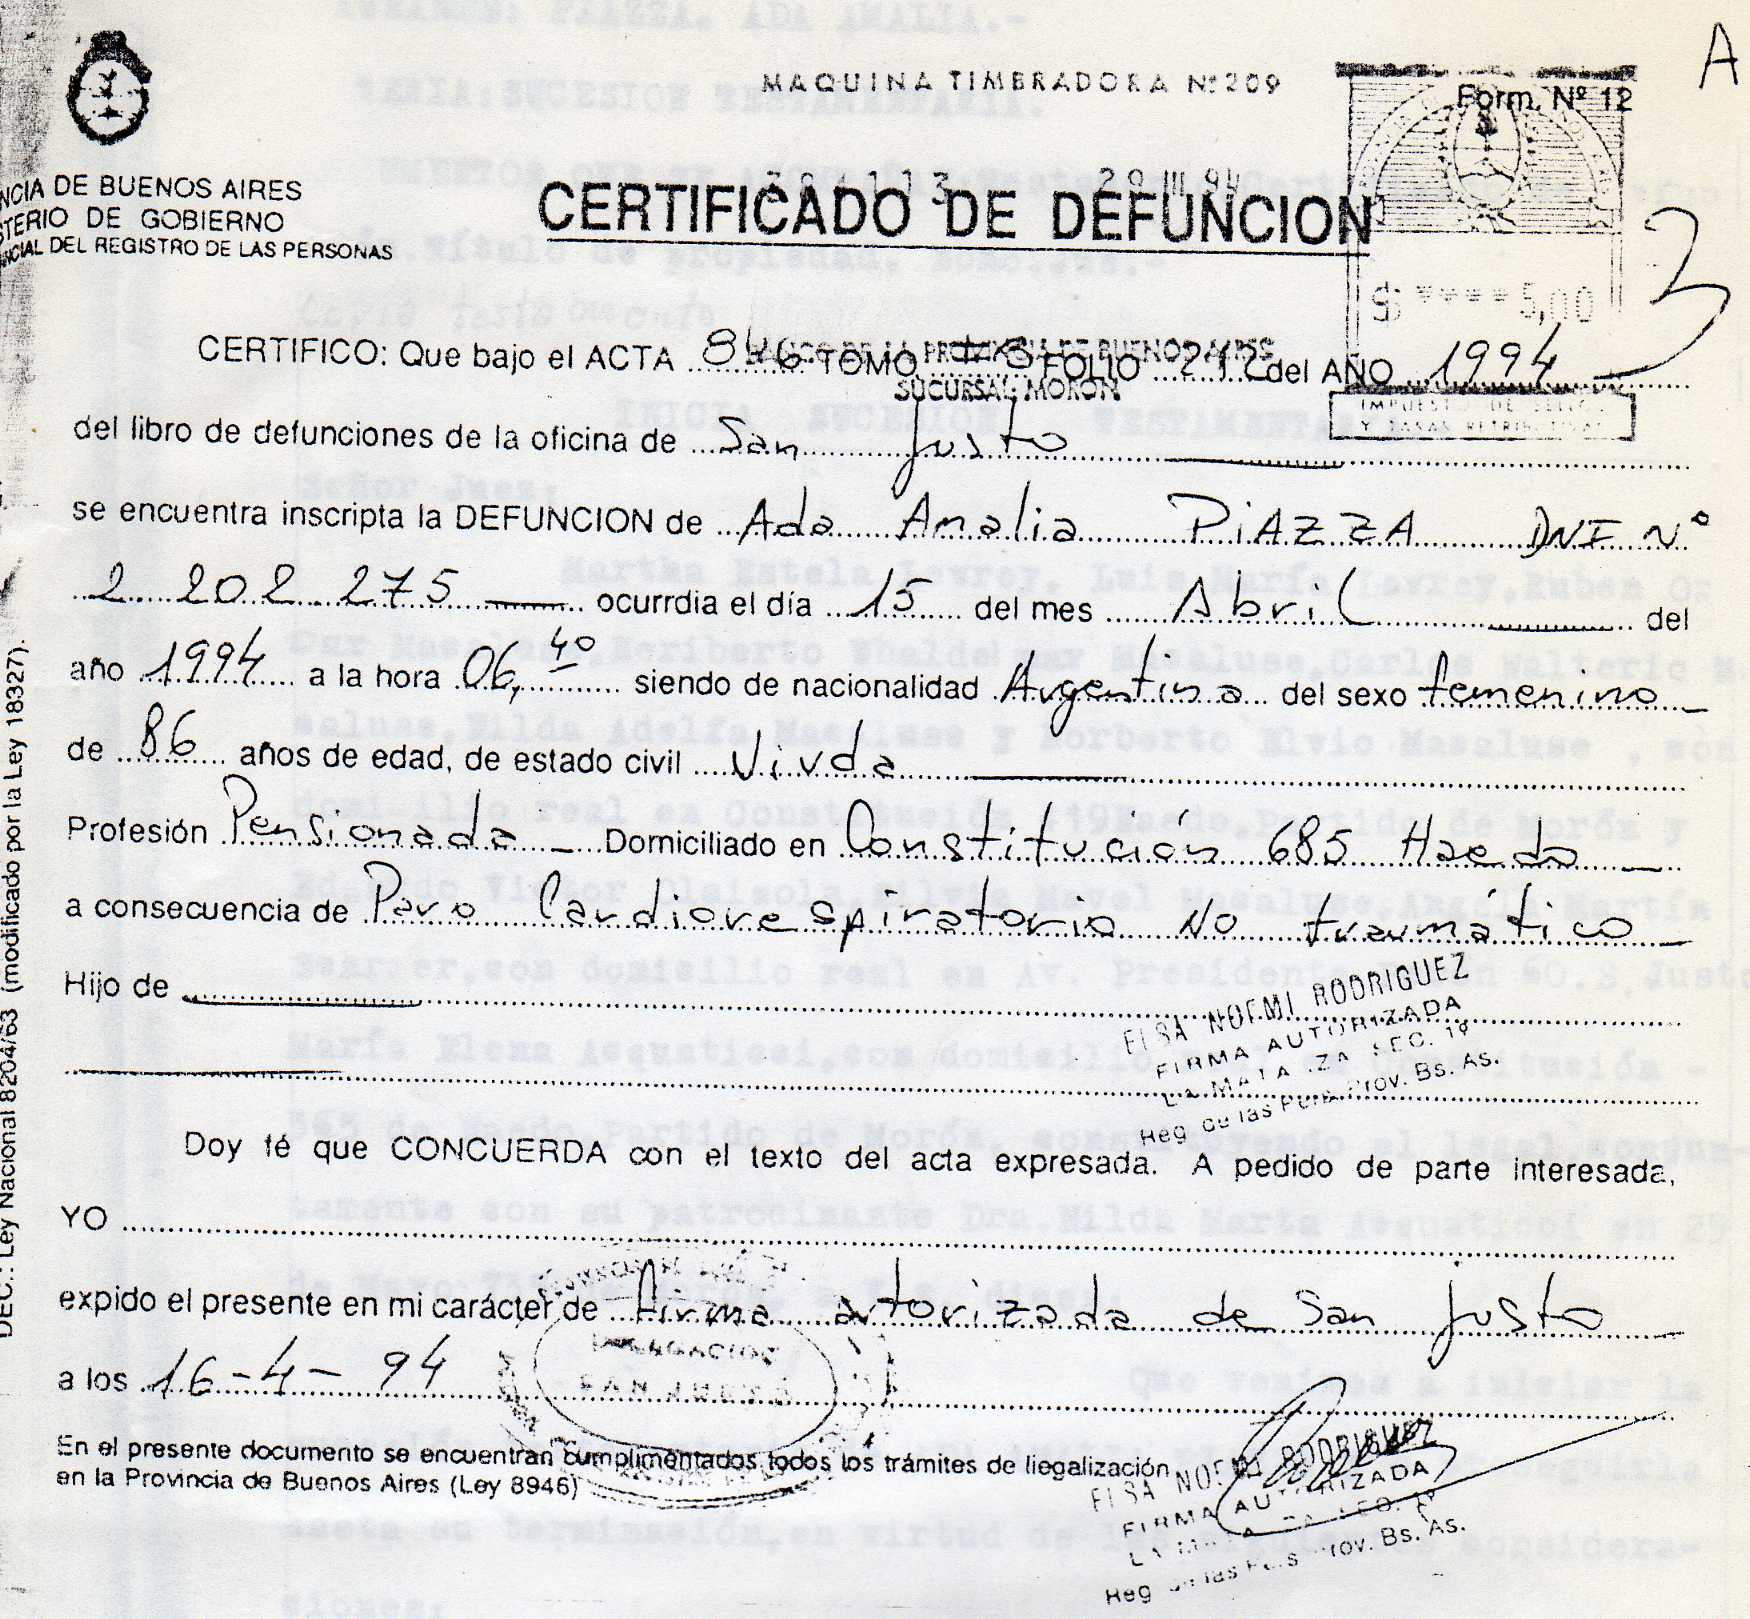 A
MAQUINA TIMBRADORA Nº 209
Form. Nº 12
DE BUENOS AIRES
DE GOBIERNO
DEL REGISTRO DE LAS PERSONAS
29 III 94
CERTIFICADO DE DEFUNCION
3
$ ****5,00
BANCO DE LA PROVINCIA DE BUENOS AIRES
SUCURSAL MORON
CERTIFICO: Que bajo el ACTA 846 TOMO FOLIO 242 del AÑO 1994
IMPUESTO DE SELLOS
Y TASAS RETRIBUTIVAS
del libro de defunciones de la oficina de San Justo
se encuentra inscripta la DEFUNCION de Ada Amalia PIAZZA DNI Nº
2.202.275 ocurrdia el día 15 del mes Abril del
año 1994 a la hora 06,40 siendo de nacionalidad Argentina del sexo femenino
de 86 años de edad, de estado civil Viuda
Profesión Pensionada Domiciliado en Constitución 685 Haedo
a consecuencia de Paro Cardiorespiratorio No traumático
Hijo de
ELSA NOEMI RODRIGUEZ
FIRMA AUTORIZADA
LA MATANZA SEC. 1ª
Reg. de las Pers. Prov. Bs. As.
Doy fé que CONCUERDA con el texto del acta expresada. A pedido de parte interesada,
YO
expido el presente en mi carácter de Firma autorizada de San Justo
DELEGACION
SAN JUSTO
a los 16-4-94
En el presente documento se encuentran cumplimentados todos los trámites de liegalización
en la Provincia de Buenos Aires (Ley 8946)
ELSA NOEMI RODRIGUEZ
FIRMA AUTORIZADA
LA MATANZA SEC. 1ª
Reg. de las Pers. Prov. Bs. As.
DEC.: Ley Nacional 8204/63 (modificado por la Ley 18327).